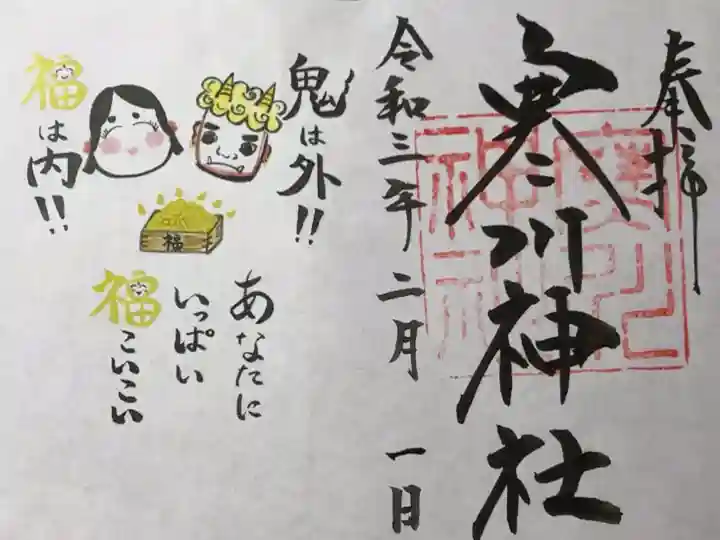 奉拝
寒川神社
令和三年二月 一日
鬼は外!!
福は内!!
福
あなたに
いっぱい
福こいこい
寒川
神社